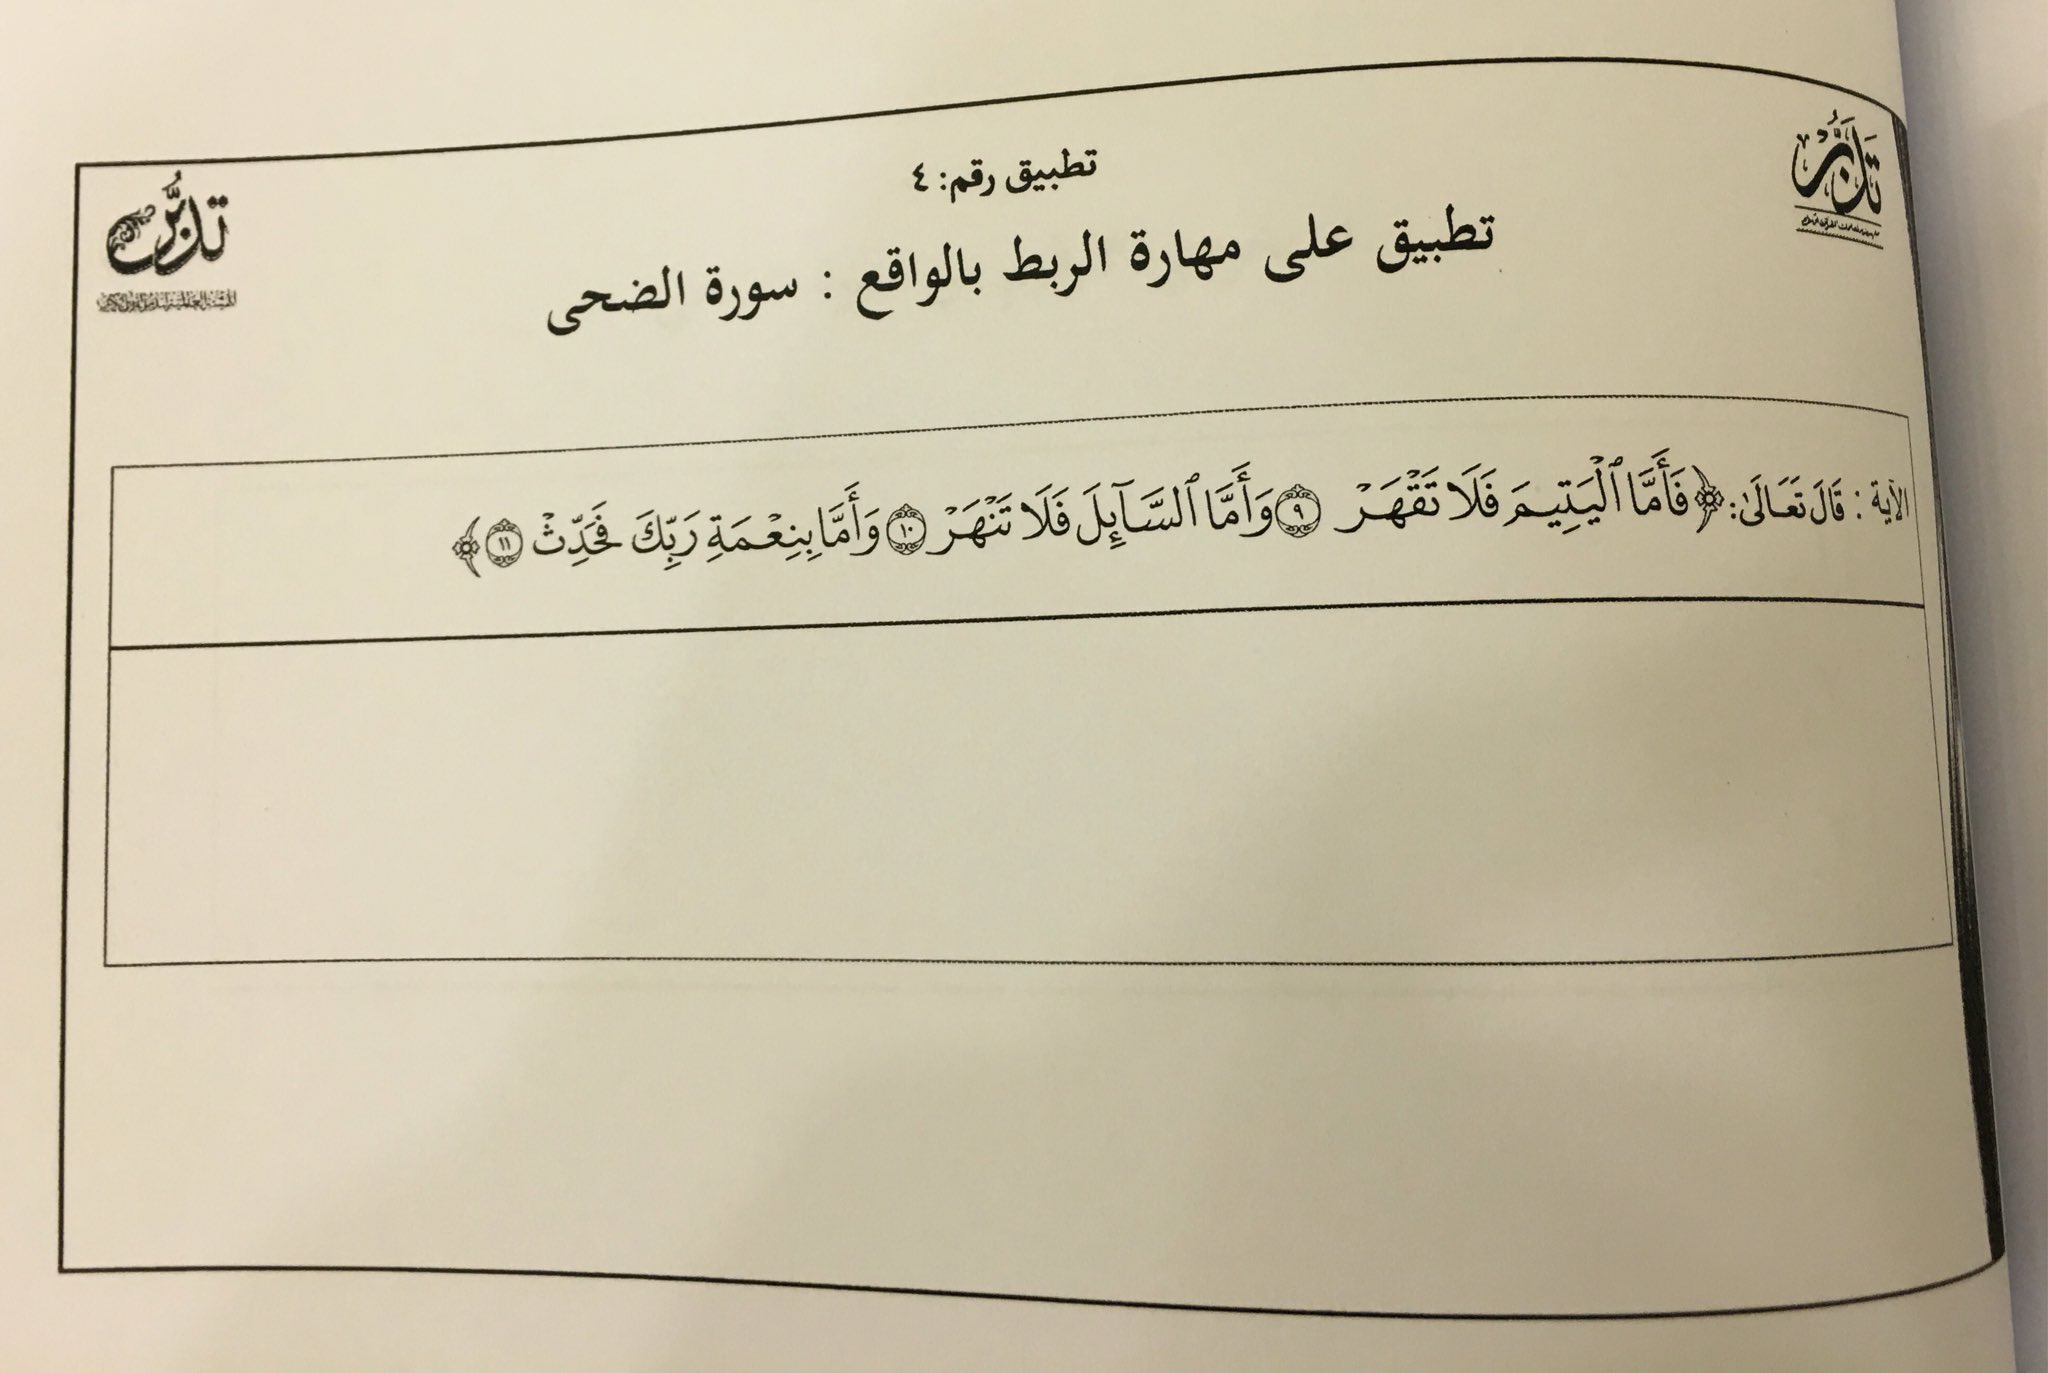 تطبيق رقم: ٤
تدبر
تدبر
تطبيق على مهارة الربط بالواقع : سورة الضحى
الآية : قَالَ تَعَالَىٰ: ﴿فَأَمَّا ٱلْيَتِيمَ فَلَا تَقْهَرْ ۝٩ وَأَمَّا ٱلسَّآئِلَ فَلَا تَنْهَرْ ۝١٠ وَأَمَّا بِنِعْمَةِ رَبِّكَ فَحَدِّثْ ۝١١﴾